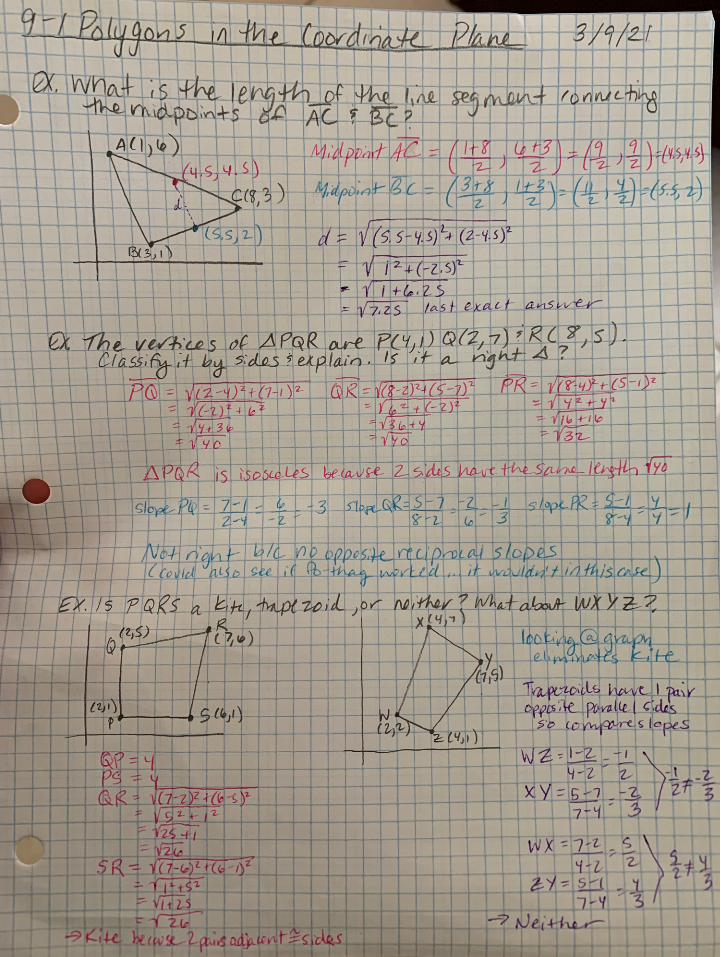 9-1 Polygons in the Coordinate Plane 3/9/21
Ex. What is the length of the line segment connecting
the midpoints of AC & BC?
A(1,6)
(4.5, 4.5)
C(8,3)
d
(5.5, 2)
B(3,1)
Midpoint AC = (1+8/2, 6+3/2) = (9/2, 9/2) = (4.5, 4.5)
Midpoint BC = (3+8/2, 1+3/2) = (11/2, 4/2) = (5.5, 2)
d = √(5.5-4.5)²+(2-4.5)²
= √1²+(-2.5)²
= √1+6.25
= √7.25 last exact answer
Ex The vertices of △PQR are P(4,1) Q(2,7) & R(8,5).
Classify it by sides & explain. Is it a right △?
PQ = √(2-4)²+(7-1)²
= √(-2)²+6²
= √4+36
= √40
QR = √(8-2)²+(5-7)²
= √6²+(-2)²
= √36+4
= √40
PR = √(8-4)²+(5-1)²
= √4²+4²
= √16+16
= √32
△PQR is isosceles because 2 sides have the same length √40
slope PQ = 7-1/2-4 = 6/-2 = -3 slope QR = 5-7/8-2 = -2/6 = -1/3 slope PR = 5-1/8-4 = 4/4 = 1
Not right b/c no opposite reciprocal slopes
(could also see if Pythag worked... it wouldn't in this case)
Ex. Is PQRS a kite, trapezoid, or neither? What about WXYZ?
Q (2,5)
R (7,6)
(2,1) P
S (6,1)
X (4,7)
Y (7,5)
W (2,2)
Z (4,1)
looking @ graph
eliminates kite
Trapezoids have 1 pair
opposite parallel sides
so compare slopes
QP = 4
PS = 4
QR = √(7-2)²+(6-5)²
= √5²+1²
= √25+1
= √26
SR = √(7-6)²+(6-1)²
= √1²+5²
= √1+25
= √26
→ Kite because 2 pairs adjacent ≅ sides
WZ = 1-2/4-2 = -1/2
XY = 5-7/7-4 = -2/3
-1/2 ≠ -2/3
WX = 7-2/4-2 = 5/2
ZY = 5-1/7-4 = 4/3
5/2 ≠ 4/3
→ Neither